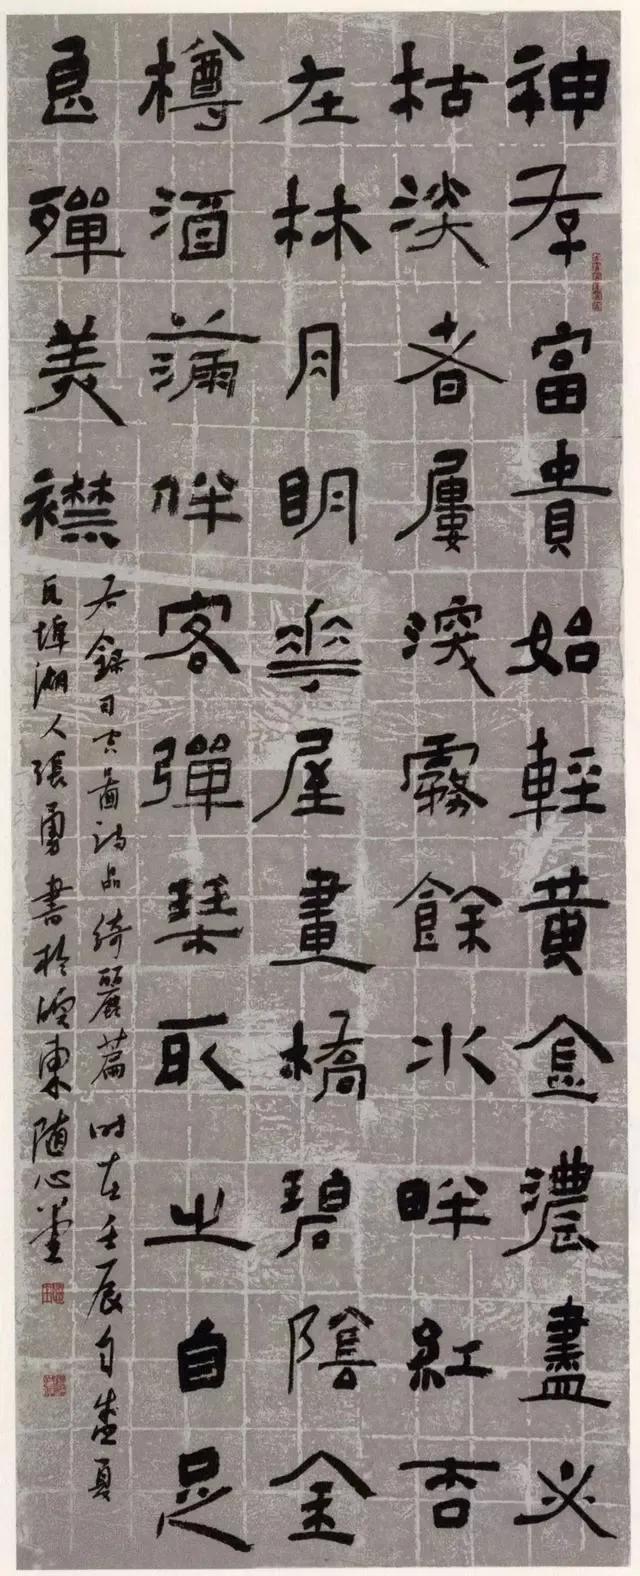 神存富貴始輕黃金濃盡必
枯淡者屢深霧餘水畔紅杏
在林月明華屋畫橋碧陰金
樽酒滿伴客彈琴取之自足
良殫美襟
右錄司空圖詩品綺麗篇時在壬辰盛夏
瓦埠湖人張勇書於皖東随心堂